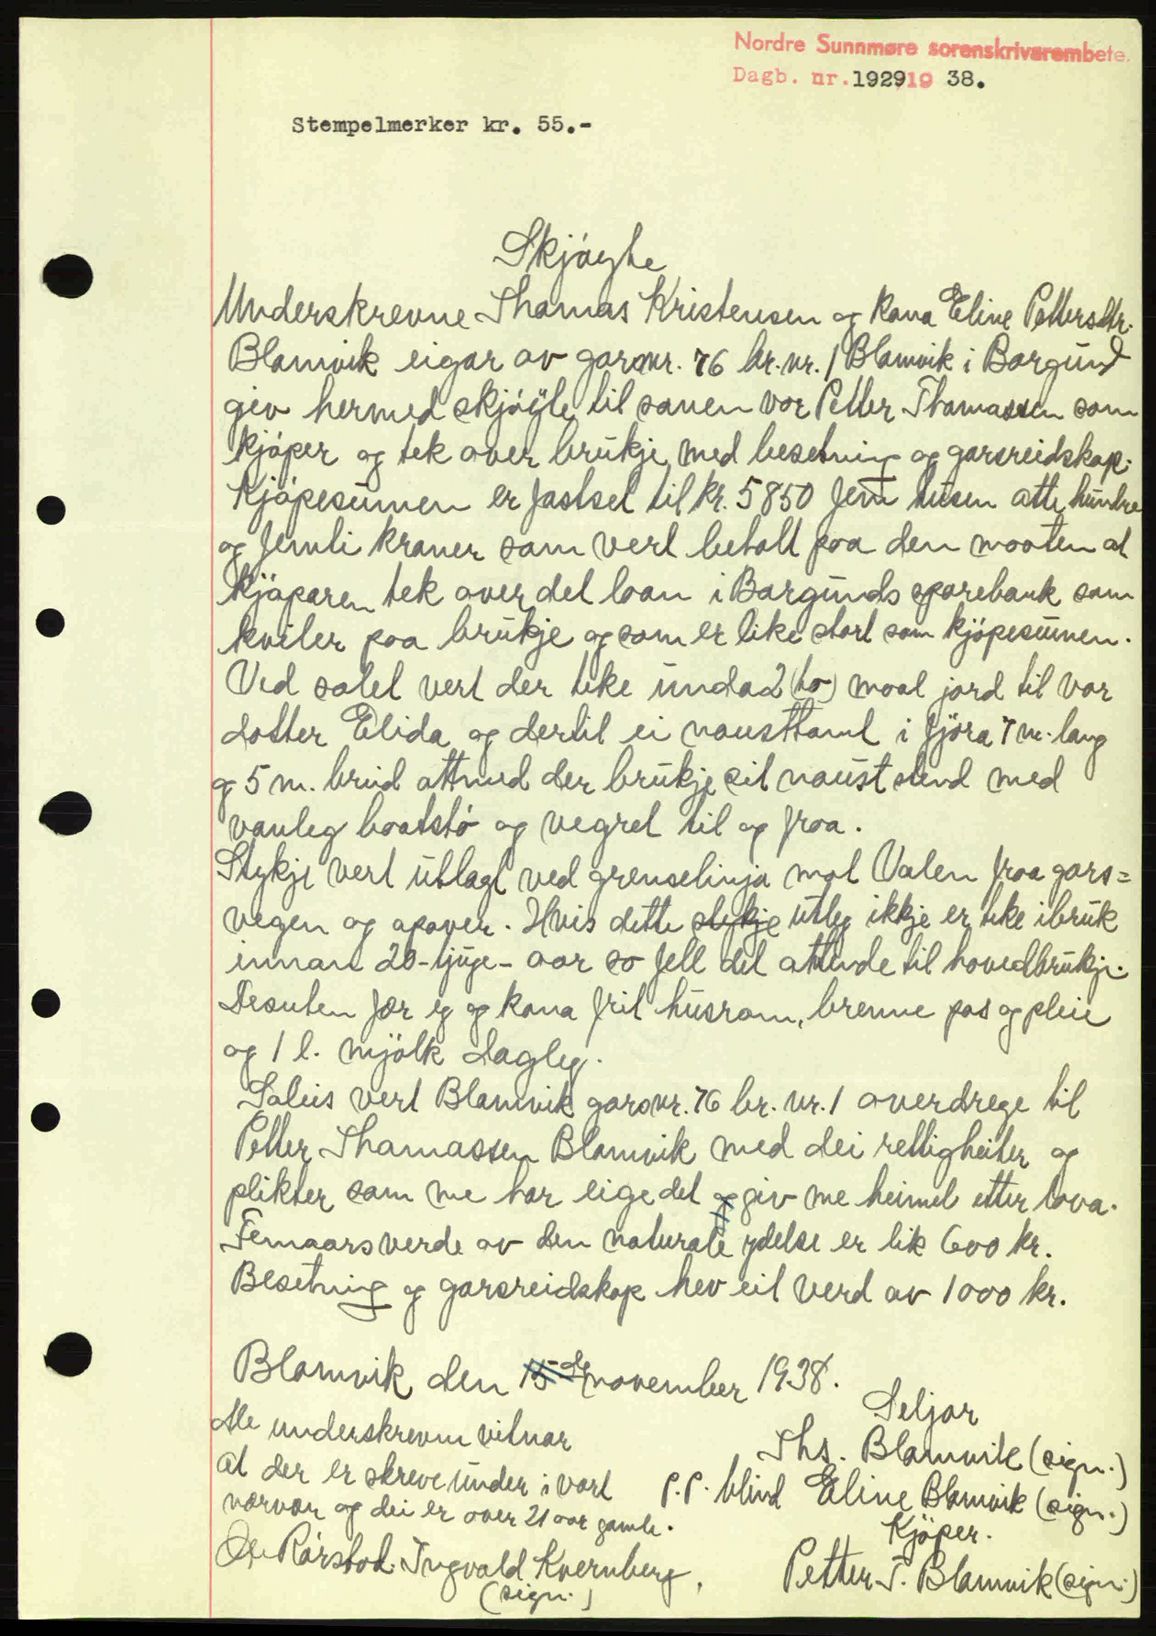 Nordre Sunnmøre sorenskriverembete.
Dagb. nr. 1929/19 38.
Stempelmerker kr. 55.-
Skjøyte
Underskrevne Thomas Kristensen og kona Eline Pettersdtr.
Blomvik eigar av gardnr. 76 br.nr. 1 Blomvik i Borgund
giv hermed skjøyte til sonen vor Petter Thomassen som
kjøper og tek over brukje med besetning og garsreidskap.
Kjøpesumen er fastset til kr. 5850 fem tusen otte hundre
og femti kroner som vert betalt paa den maaten at
kjøparen tek over det laan i Borgunds sparebank som
kviler paa brukje og som er like stort som kjøpesumen.
Ved salet vert der teke unda 2 (to) maal jord til vor
dotter Elida og dertil ei nausttomt i fjöra 7 m. lang
og 5 m. breid attmed der brukje sit naust stend med
vanleg baatstø og vegret til og fraa.
Stykje vert utlagt ved grenselinja mot Valen fraa gars=
vegen og opover. Hvis dette stykje utleg ikkje er teke ibruk
innan 20-tjuge- aar so fell det attende til hovedbrukje.
Desuten fær eg og kona frit husrom, brenne pas og pleie
og 1 l. mjölk dagleg.
Soleis vert Blomvik gardnr. 76 br. nr. 1 overdrege til
Petter Thomassen Blomvik med dei rettigheiter og
plikter som me har eige det og giv me heimel etter lova.
Femaarsverde av den naturale ydelse er lik 600 kr.
Besetning og garsreidskap hev eit verd av 1000 kr.
Blomvik den 15-de november 1938.
Seljar
Me underskrevne vitnar
Ths. Blomvik (sign.)
at der er skreve under i vort
p.p. blind Eline Blomvik (sign.)
nærvær og dei er over 21 aar gamle.
Kjöper.
Ole Rörstad. Ingvald Kvernberg,
Petter T. Blomvik (sign.)
(sign.)